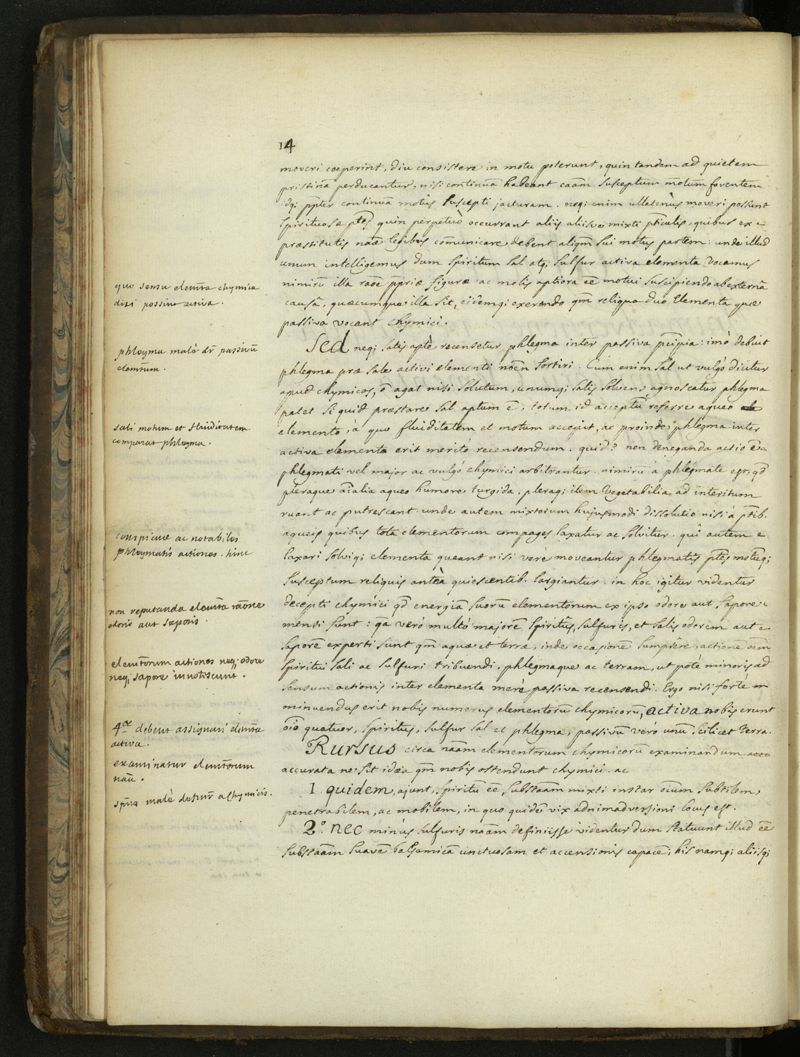 14
moveri coeperint, diu consistere in motu poterunt, quin tandem ad quietem
pristinā perducantur, nisi continuā habeant caām susceptum motum foventem
idq; ppter continuā motus suscepti jacturam. neq; enim ullatenus moveri possunt
spirituosæ ptes quin perpetuò occurrant aliis aliisve mixti pticulis, quibus ex
præstitutis naæ legibus comunicare debent aliqm sui motus partem: unde illud
unum intelligemus dum spiritum sal atq; sulfur activa elementa vocamus
nimirū illa raōe ppriæ figuræ ac molis aptiora eē motui suscipiendo ab externā
causā, quæcumque illa sit, eiq; exerendo qm reliqua duo elementa quæ
passiva vocant chymici.
quo sensu elemta chymica
dici possint activa.
Sed neq; satis aptè recensetur phlegma inter passiva pcipia: imò debuit
phlegma præ sale activi elementi nōen sortiri. Cum enim sal ut vulgò dicitur
apud chymicos, ō agat nisi solutum, unumq; satis solvens agnoscatur phlegma
patet si quid præstare sal aptum ē, totum id acceptū referre aqueo
elemento, à quo fluiditatem et motum accipit, ac proinde phlegma inter
activa elementa erit meritò recensendum. quid? non deneganda actio
phlegmati vel major ac vulgò chymici arbitrantur. nimirū a phlegmate qd
pleraque aīalia aqueo humore turgida, pleraq; item vegetabilia ad interitum
ruant ac putrescant unde autem mixtorum hujusmodi dissolutio nisi à ptib.
aqueis quibus tota elementorum compages laxatur ac solvitur. qui autem
laxari solviq; elementa queant nisi vere moveantur phlegmatis ptes motumq;
susceptum reliquis anteà quiescentib. largiantur. in hoc igitur videntur
decepti chymici qd energiā suorū elementorum ex ipso odore aut sapore
mensi sunt: qa verò multò majorē spiritus, sulfuris, et salis odorem aut
saporē experti sunt qm aquæ et terræ, inde occasionē sumpsere, actionē oem
spiritui sali ac sulfuri tribuendi, phlegmaque ac terram, ut potè minoris ad
sensum actionis inter elementa merè passiva recensendi. Ergo nisi fortè
minuendus erit nobis numerus elementorū chymicorū, activa nobis erunt
oīo quatuor, spiritus, sulfur sal et phlegma, passivū verò unū scilicet terra.
phlegma malè dr passivū
elemtum.
sali motum et fluiditatem
comparat phlegma.
conspicuæ ac notabiles
phlegmatis actiones. hinc
non reputanda elemta raōne
odoris aut saporis.
elemtorum actiones neq; odore
neq; sapore innotescunt.
4or debent assignari elemta
activa.
Rursus circa naam elementorum chymicorū examinandum
accurata ne sit idea qm nobis ostendunt chymici. ac
1. quidem, ajunt, spiritū eē substaam mixti instar oium subtilem
penetrabilem, ac mobilem, in quo quidē vix adnimadversioni locus est.
2.° nec minùs sulfuris naam definiisse videntur dum statuunt illud eē
substaam suavē balsamicā unctuosam et accensionis capacē, his namq; aliisq;
examinatur elemtorum
naā.
spirs malè definr a chymicis.